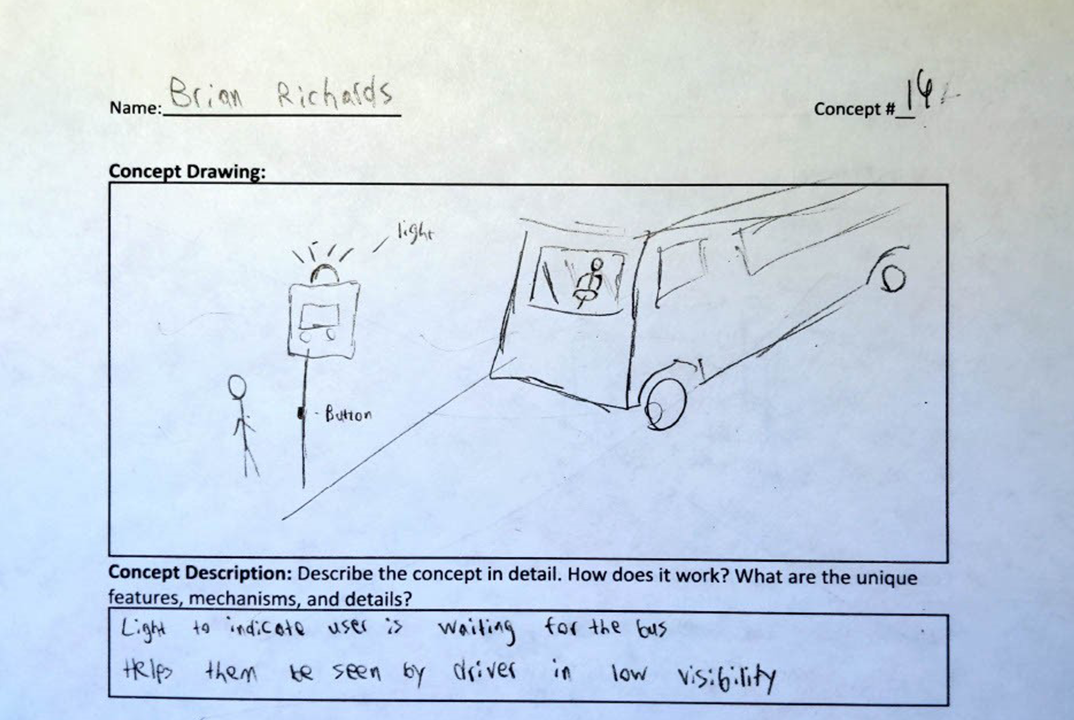 Name: Brian Richards
Concept #
Concept Drawing:
light
Button
Concept Description: Describe the concept in detail. How does it work? What are the unique
features, mechanisms, and details?
Light to indicate user is waiting for the bus
Helps them be seen by driver in low visibility